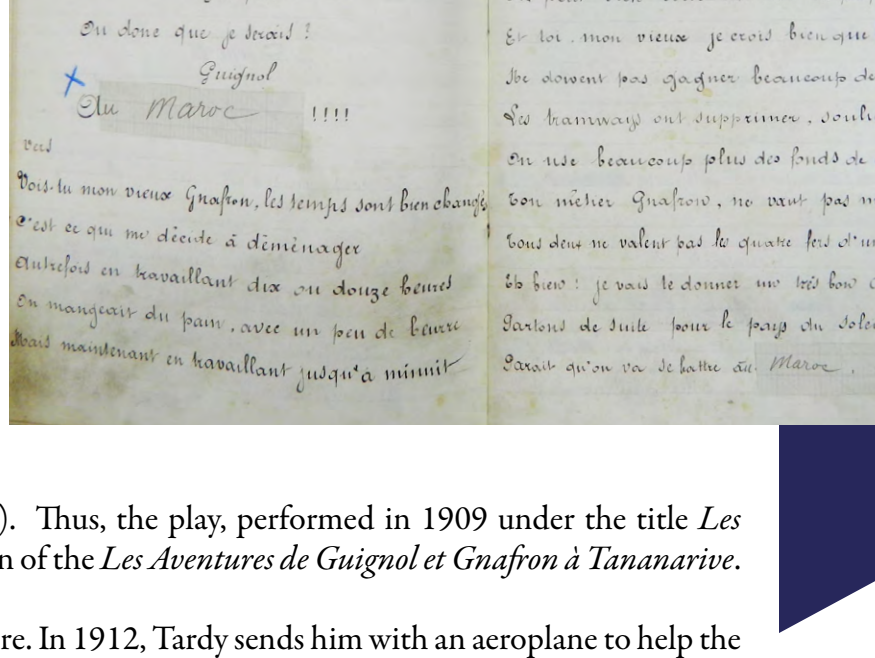 Ou donc que je serais ?
Guignol
Au Maroc !!!!
vers
Vois-tu mon vieux Gnafron, les temps sont bien changés
C'est ce qui me décide à déménager
Autrefois en travaillant dix ou douze heures
On mangeait du pain, avec un peu de beurre
Mais maintenant en travaillant jusqu'à minuit
Et toi, mon vieux je crois bien que
Ne doivent pas gagner beaucoup de
Les tramways ont supprimer, soul
On use beaucoup plus des fonds de
Ton métier Gnafron, ne vaut pas
Tous deux ne valent pas les quatre fers d'un
Eh bien ! je vais te donner un très bon
Partons de suite pour le pays du solei
Parait qu'on va se battre au Maroc.
). Thus, the play, performed in 1909 under the title Les
n of the Les Aventures de Guignol et Gnafron à Tananarive.
re. In 1912, Tardy sends him with an aeroplane to help the